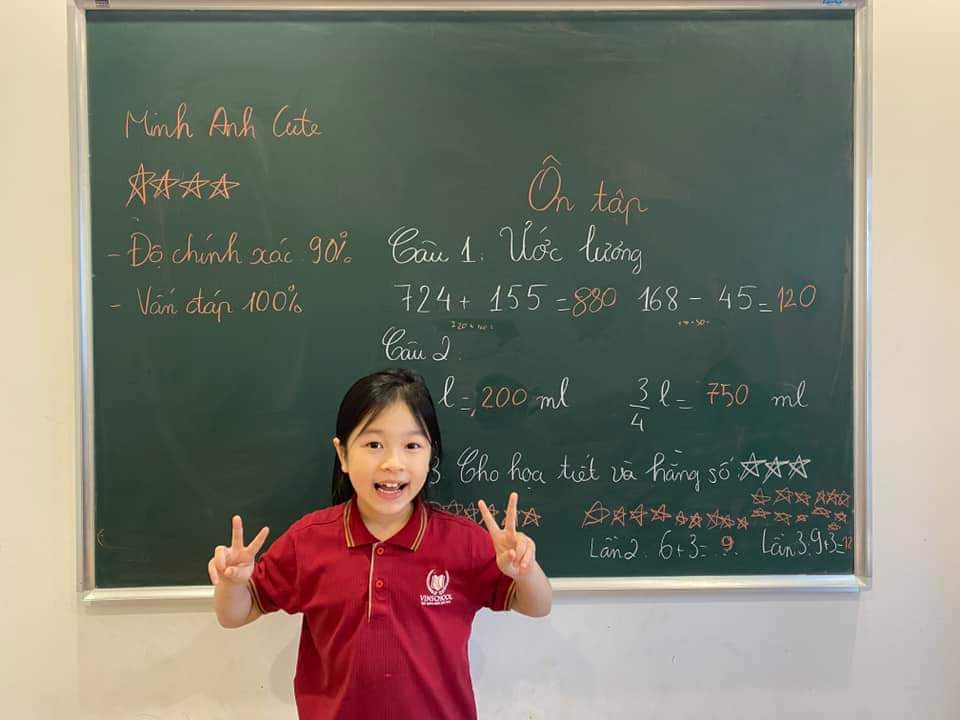 Minh Anh Cute
- Độ chính xác 90%
- Vấn đáp 100%
Ôn tập
Câu 1: Ước lượng
724 + 155 = 880 168 - 45 = 120
Câu 2:
l = 200 ml 3/4 l = 750 ml
3 Cho họa tiết và hằng số:
Lần 2: 6+3= 9 Lần 3: 9+3=12
VINSCHOOL